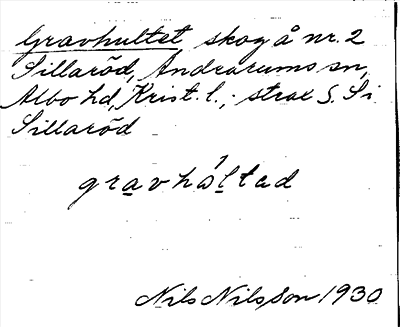 Gravhultet skog å nr. 2
Sillaröd, Andrarums sn,
Albo hd, Krist. l.; strax S. Si
Sillaröd
gravhəltad
Nils Nilsson 1930